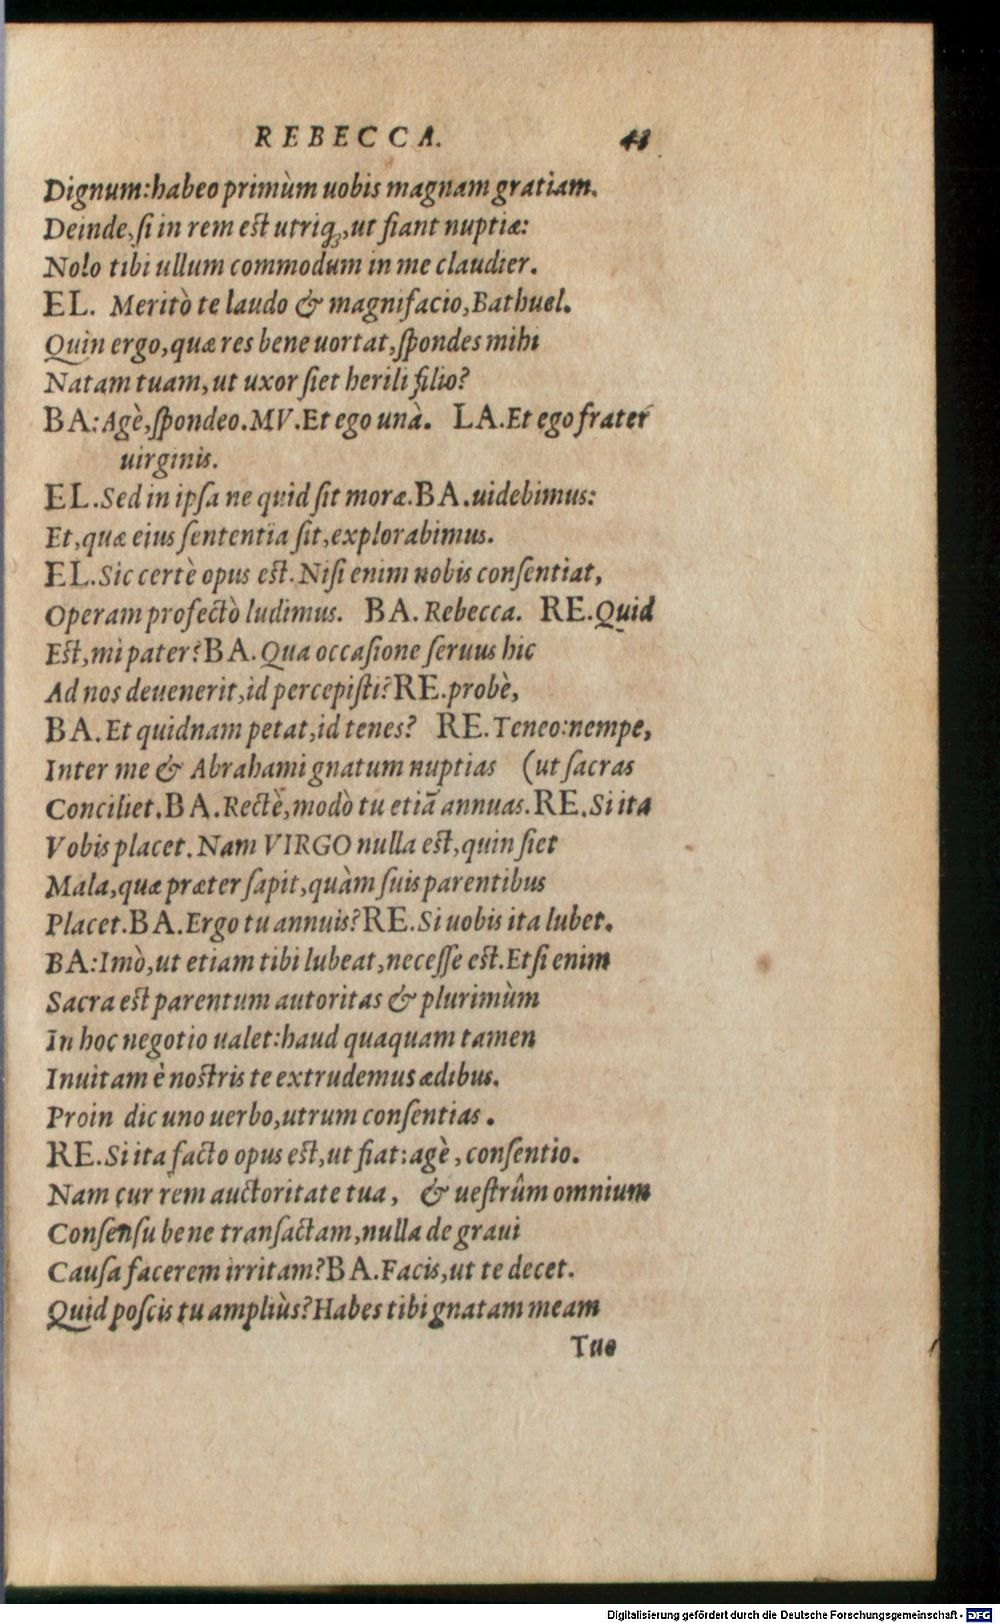 REBECCA. 43
Dignum: habeo primùm uobis magnam gratiam.
Deinde, si in rem est utriq;, ut fiant nuptiæ:
Nolo tibi ullum commodum in me claudier.
EL. Meritò te laudo & magnifacio, Bathuel.
Quin ergo, quæ res bene uortat, spondes mihi
Natam tuam, ut uxor siet herili filio?
BA: Agè, spondeo. MV. Et ego unà. LA. Et ego frater
uirginis.
EL. Sed in ipsa ne quid sit moræ. BA. uidebimus:
Et, quæ eius sententia sit, explorabimus.
EL. Sic certè opus est. Nisi enim nobis consentiat,
Operam profectò ludimus. BA. Rebecca. RE. Quid
Est, mì pater? BA. Qua occasione seruus hic
Ad nos deuenerit, id percepisti? RE. probè,
BA. Et quidnam petat, id tenes? RE. Teneo: nempe,
Inter me & Abrahami gnatum nuptias (ut sacras
Conciliet. BA. Rectè, modò tu etiã annuas. RE. Si ita
Vobis placet. Nam VIRGO nulla est, quin siet
Mala, quæ præter sapit, quàm suis parentibus
Placet. BA. Ergo tu annuis? RE. Si uobis ita lubet.
BA: Imò, ut etiam tibi lubeat, necesse est. Etsi enim
Sacra est parentum autoritas & plurimùm
In hoc negotio ualet: haud quaquam tamen
Inuitam è nostris te extrudemus ædibus.
Proin dic uno uerbo, utrum consentias.
RE. Si ita facto opus est, ut fiat: agè, consentio.
Nam cur rem auctoritate tua, & uestrûm omnium
Consensu bene transactam, nulla de graui
Causa facerem irritam? BA. Facis, ut te decet.
Quid poscis tu ampliùs? Habes tibi gnatam meam
Tuo
Digitalisierung gefördert durch die Deutsche Forschungsgemeinschaft - DFG